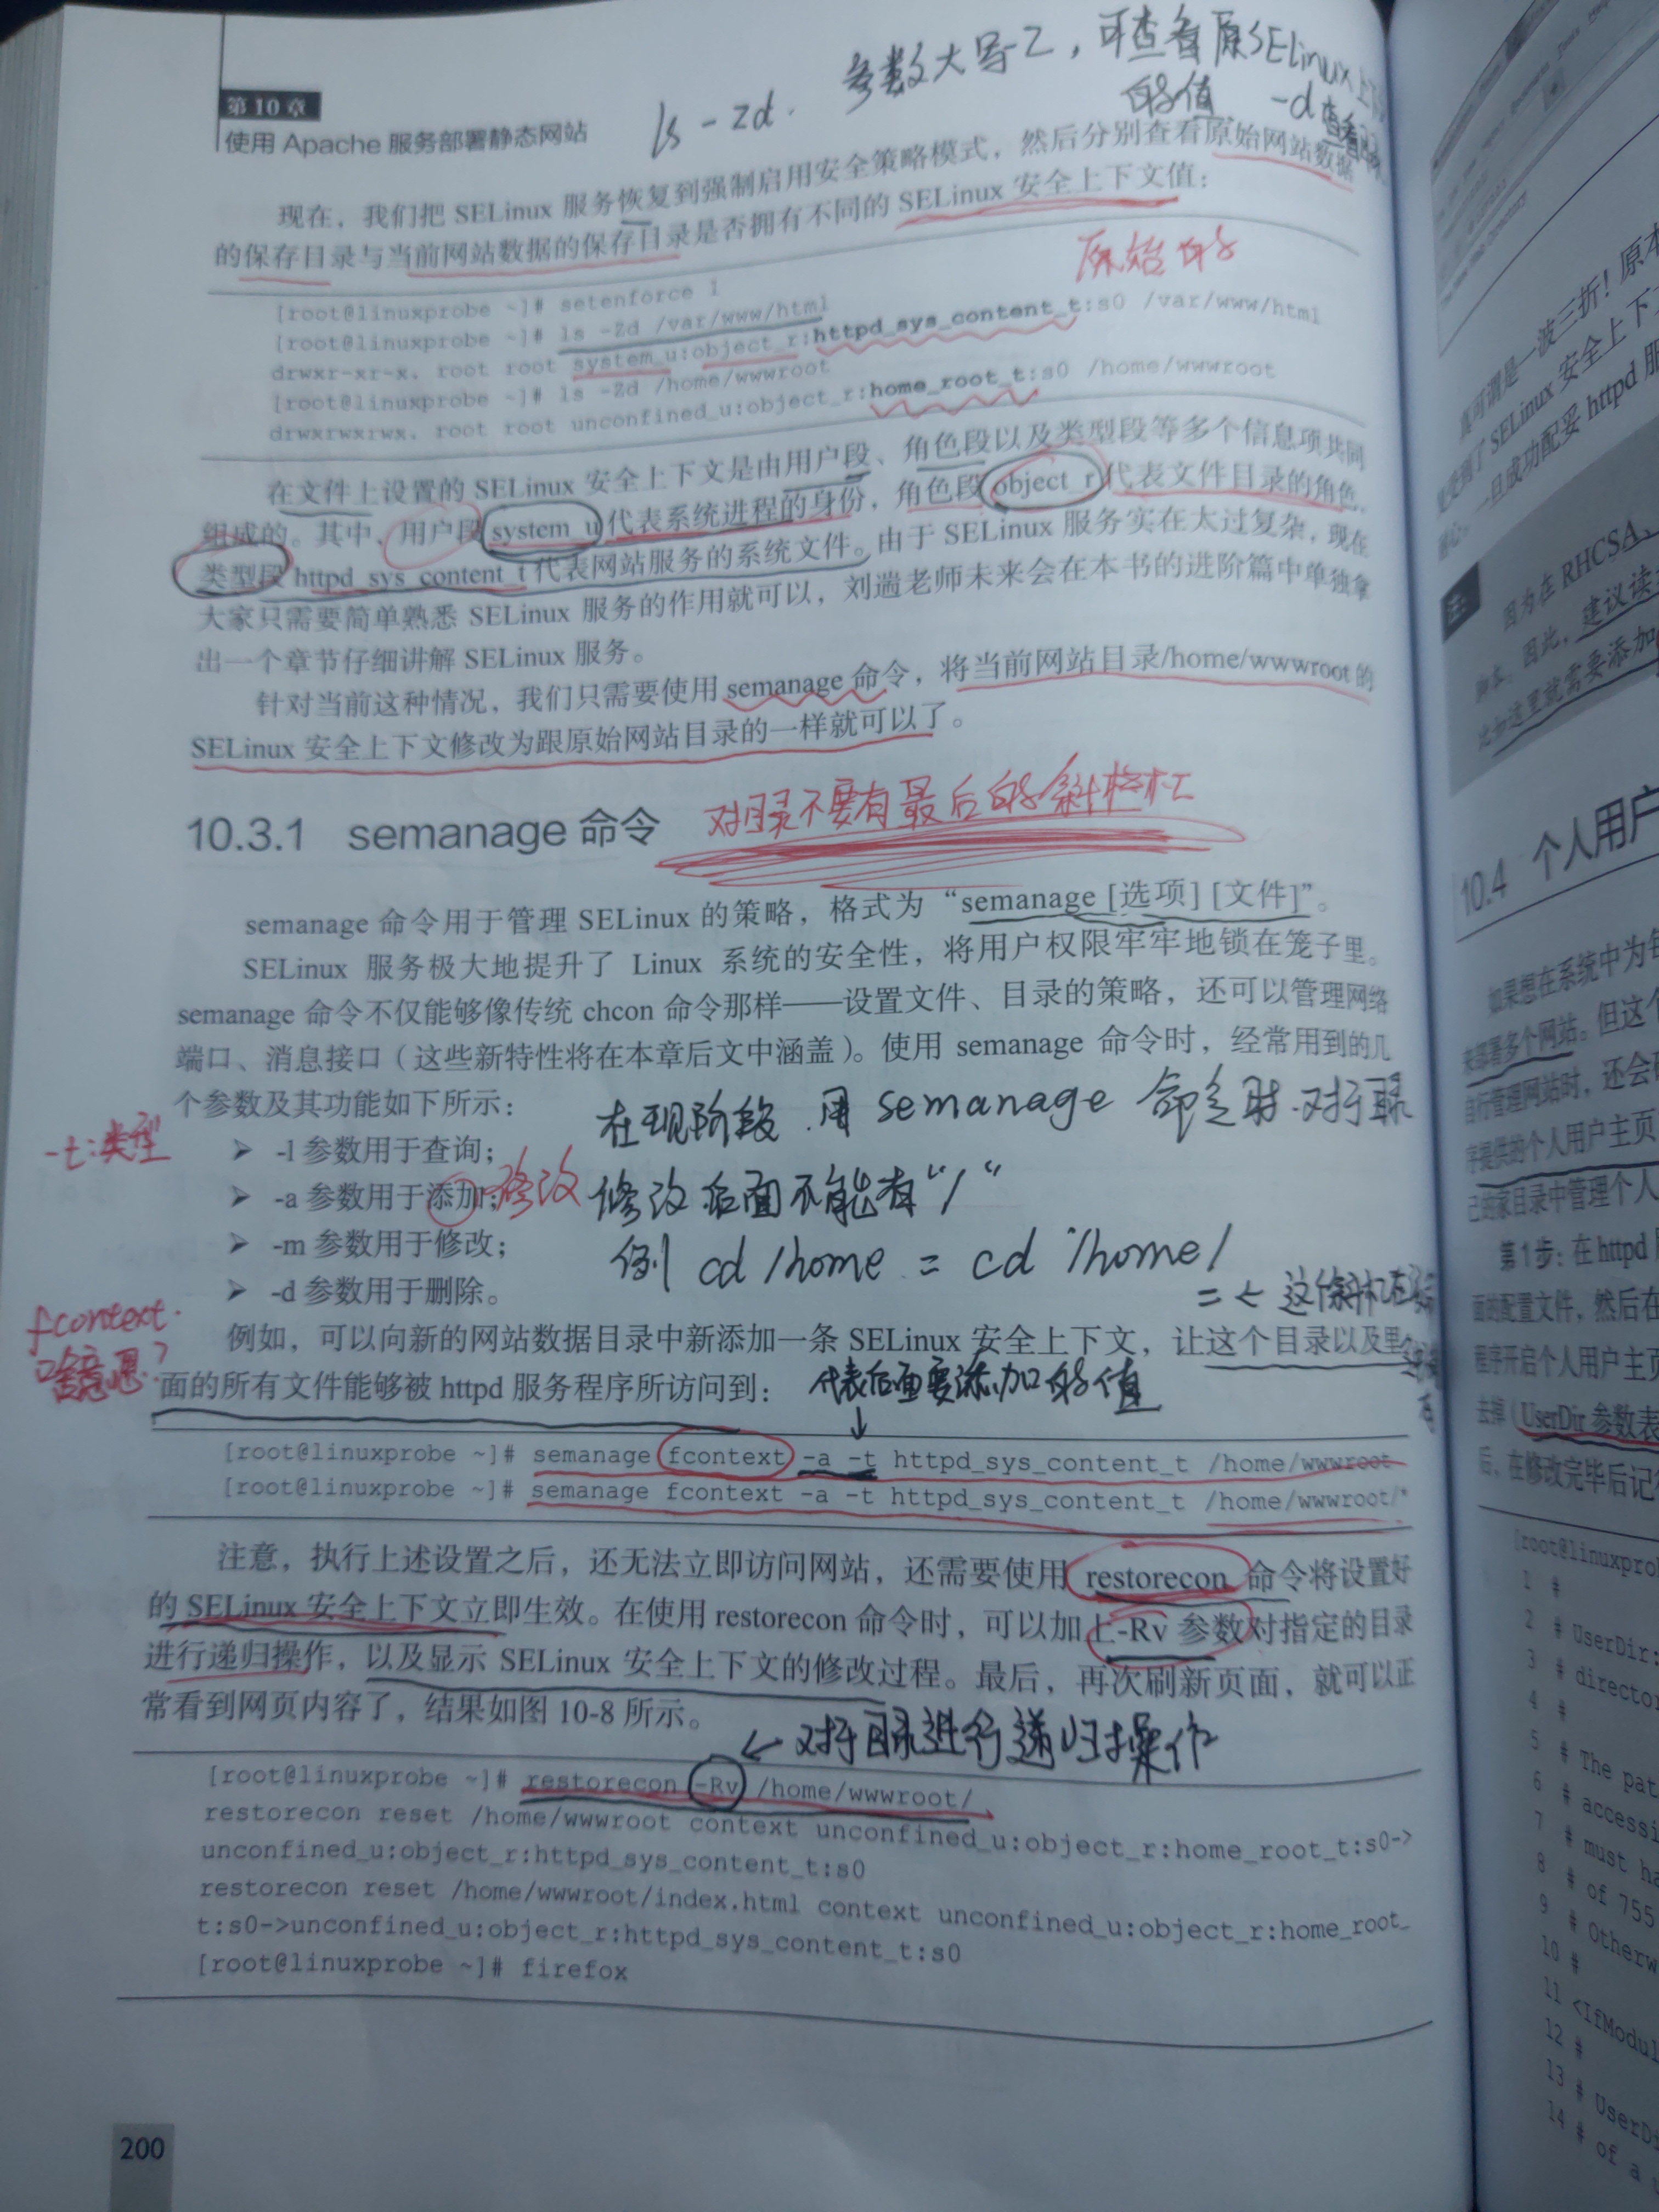 参数大写-Z，可查看原SELinux上
ls -Zd.
的值 -d查看
第10章
使用 Apache 服务部署静态网站
现在，我们把 SELinux 服务恢复到强制启用安全策略模式，然后分别查看原始网站数据
的保存目录与当前网站数据的保存目录是否拥有不同的 SELinux 安全上下文值：
原始的
[root@linuxprobe ~]# setenforce 1
[root@linuxprobe ~]# ls -Zd /var/www/html
drwxr-xr-x. root root system_u:object_r:httpd_sys_content_t:s0 /var/www/html
[root@linuxprobe ~]# ls -Zd /home/wwwroot
drwxrwxrwx. root root unconfined_u:object_r:home_root_t:s0 /home/wwwroot
在文件上设置的 SELinux 安全上下文是由用户段、角色段以及类型段等多个信息项共同
组成的。其中，用户段 system_u 代表系统进程的身份，角色段 object_r 代表文件目录的角色，
类型段 httpd_sys_content_t 代表网站服务的系统文件。由于 SELinux 服务实在太过复杂，现在
大家只需要简单熟悉 SELinux 服务的作用就可以，刘遄老师未来会在本书的进阶篇中单独拿
出一个章节仔细讲解 SELinux 服务。
针对当前这种情况，我们只需要使用 semanage 命令，将当前网站目录/home/wwwroot 的
SELinux 安全上下文修改为跟原始网站目录的一样就可以了。
10.3.1 semanage 命令
对目录不要有最后的斜杠
semanage 命令用于管理 SELinux 的策略，格式为“semanage [选项] [文件]”。
SELinux 服务极大地提升了 Linux 系统的安全性，将用户权限牢牢地锁在笼子里。
semanage 命令不仅能够像传统 chcon 命令那样——设置文件、目录的策略，还可以管理网络
端口、消息接口（这些新特性将在本章后文中涵盖）。使用 semanage 命令时，经常用到的几
个参数及其功能如下所示：
在现阶段.用 semanage 命令时.对于目录
-t:类型
➢ -l 参数用于查询；
➢ -a 参数用于添加；
修改
修改后面不能有“/“
➢ -m 参数用于修改；
例 cd /home = cd /home/
➢ -d 参数用于删除。
fcontext.
啥意思?
例如，可以向新的网站数据目录中新添加一条 SELinux 安全上下文，让这个目录以及里
面的所有文件能够被 httpd 服务程序所访问到：
代表后面要添加的值
[root@linuxprobe ~]# semanage fcontext -a -t httpd_sys_content_t /home/wwwroot
[root@linuxprobe ~]# semanage fcontext -a -t httpd_sys_content_t /home/wwwroot/*
注意，执行上述设置之后，还无法立即访问网站，还需要使用 restorecon 命令将设置好
的 SELinux 安全上下文立即生效。在使用 restorecon 命令时，可以加上-Rv 参数对指定的目录
进行递归操作，以及显示 SELinux 安全上下文的修改过程。最后，再次刷新页面，就可以正
常看到网页内容了，结果如图 10-8 所示。
← 对于目录进行递归操作
[root@linuxprobe ~]# restorecon -Rv /home/wwwroot/
restorecon reset /home/wwwroot context unconfined_u:object_r:home_root_t:s0->
unconfined_u:object_r:httpd_sys_content_t:s0
restorecon reset /home/wwwroot/index.html context unconfined_u:object_r:home_root_
t:s0->unconfined_u:object_r:httpd_sys_content_t:s0
[root@linuxprobe ~]# firefox
200
真可谓是一波三折！原本
了 SELinux 安全上下
一旦成功配妥 httpd 服
因为在 RHCSA、
脚本。因此，建议读
比如这里就需要添加
10.4 个人用户
如果想在系统中为每
来部署多个网站。但这个
自行管理网站时，还会
序提供的个人用户主页
己的家目录中管理个人
第1步：在 httpd
面的配置文件，然后在
程序开启个人用户主页
去掉（UserDir 参数表
后，在修改完毕后记
[root@linuxpro
1 #
2 # UserDir:
3 # directo
4 #
5 # The pat
6 # accessi
7 # must ha
8 # of 755
9 # Otherw
10 #
11 <IfModul
12 #
13 # UserDi
14 # of a